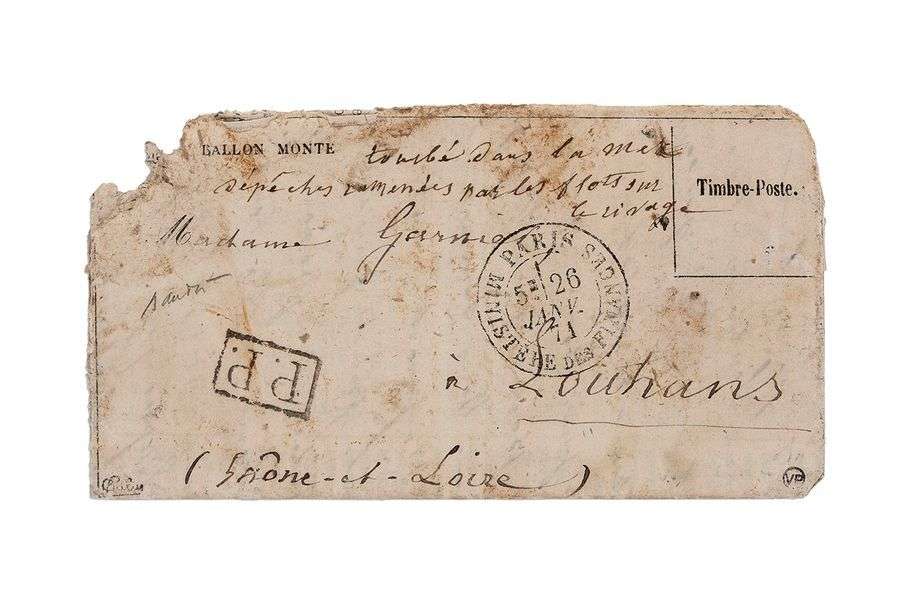 BALLON MONTÉ tombé dans la mer
dépêches ramenées par les flots sur
le rivage
Timbre-Poste.
Madame Garnier
MINISTÈRE DES FINANCES PARIS
5E 26
JANV.
71
P.P.
à Louhans
(Saône-et-Loire)
VP